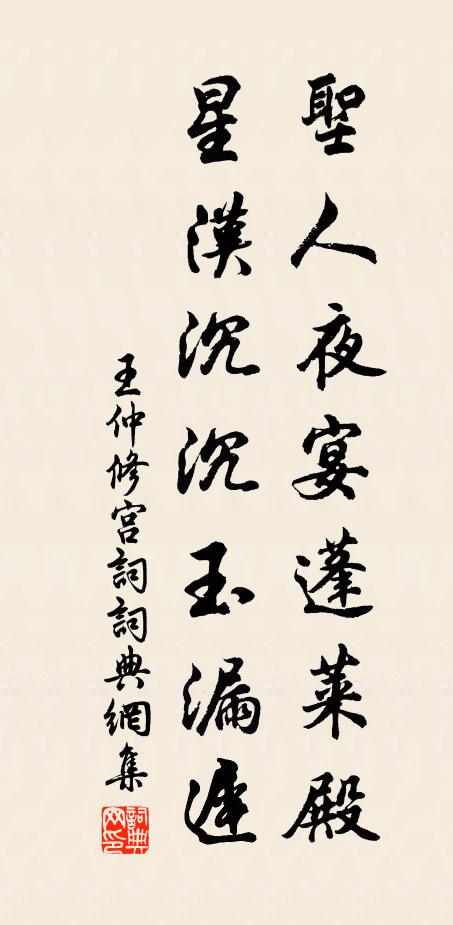 聖人夜宴蓬萊殿
星漢沉沉玉漏遲
王仲修宮詞詞典網集
詞典网印